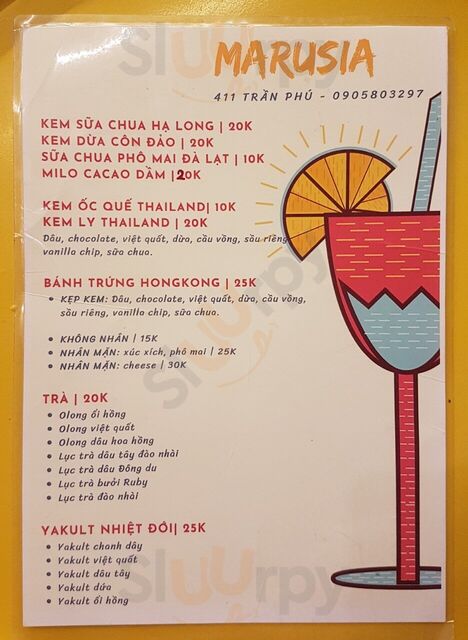 MARUSIA
411 TRẦN PHÚ - 0905803297
KEM SỮA CHUA HẠ LONG | 20K
KEM DỪA CÔN ĐẢO | 20K
SỮA CHUA PHÔ MAI ĐÀ LẠT | 10K
MILO CACAO DẦM | 20K
KEM ỐC QUẾ THAILAND| 10K
KEM LY THAILAND | 20K
Dâu, chocolate, việt quất, dừa, cầu vồng, sầu riêng,
vanilla chip, sữa chua.
BÁNH TRỨNG HONGKONG | 25K
• KẸP KEM: Dâu, chocolate, việt quất, dừa, cầu vồng,
sầu riêng, vanilla chip, sữa chua.
• KHÔNG NHÂN | 15K
• NHÂN MẶN: xúc xích, phô mai | 25K
• NHÂN MẶN: cheese | 30K
TRÀ | 20K
• Olong ổi hồng
• Olong việt quất
• Olong dâu hoa hồng
• Lục trà dâu tây đào nhài
• Lục trà dâu Đông du
• Lục trà bưởi Ruby
• Lục trà đào nhài
YAKULT NHIỆT ĐỚI| 25K
• Yakult chanh dây
• Yakult việt quất
• Yakult dâu tây
• Yakult dứa
• Yakult ổi hồng
Sluurpy
Sluurpy
Sluurpy